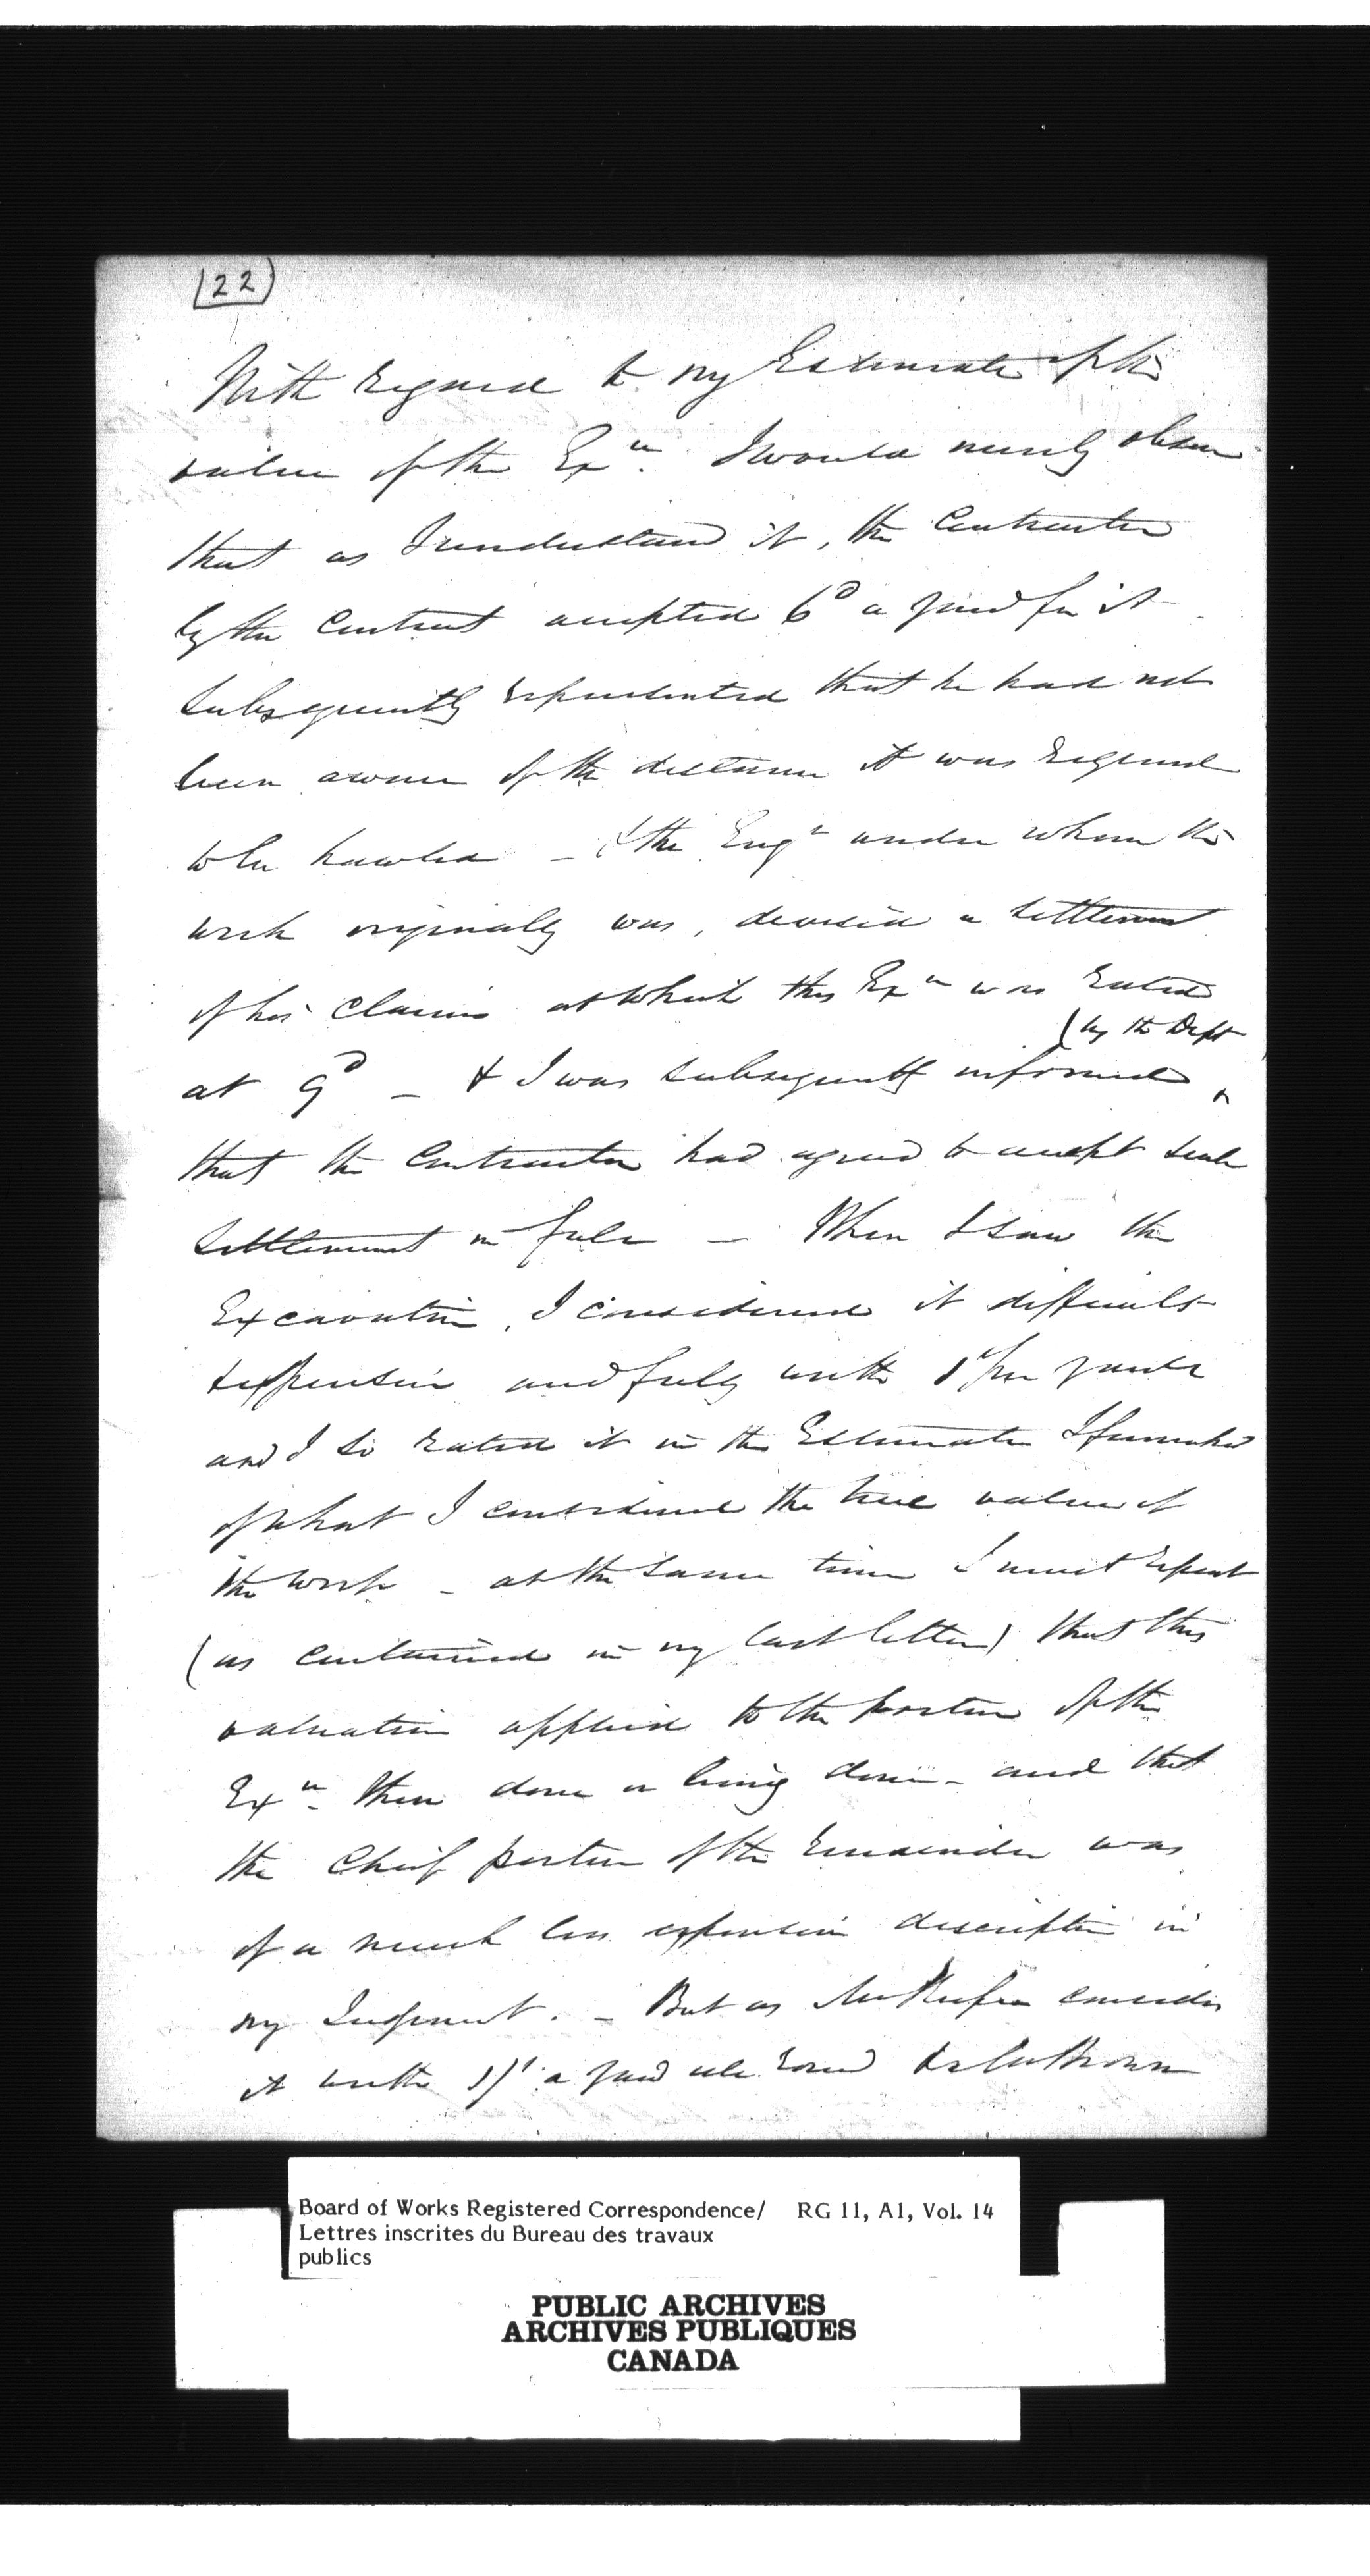 (22)
With regard to my Estimate of the
value of the Exn. I would merely observe
that as I understand it, the Contractor
by the Contract accepted 6d a yard for it
subsequently represented that he had not
been aware of the distance it was required
to be hawled – & the Engr under whom the
work originally was, devised a settlement
of his claims at which this Exn was rated
(by the Dept
at 9d – & I was subsequently informed ^
that the Contractor had agreed to accept such
settlement in full – When I saw the
Excavation, I considered it difficult
expensive and fully worth 1/ per yard
and I so rated it in the Estimate I furnished
of what I considered the true value of
the work – at the same time I must repeat
(as contained in my last letter) that this
valuation applied to the portion of the
Exn. then done or being done – and that
the Chief portion of the remainder was
of a much less expensive description in
my Judgment. – But as Mr Keefer considers
it worth 1/ a yard all round
Board of Works Registered Correspondence/ RG 11, A1, Vol. 14
Lettres inscrites du Bureau des travaux
publics
PUBLIC ARCHIVES
ARCHIVES PUBLIQUES
CANADA